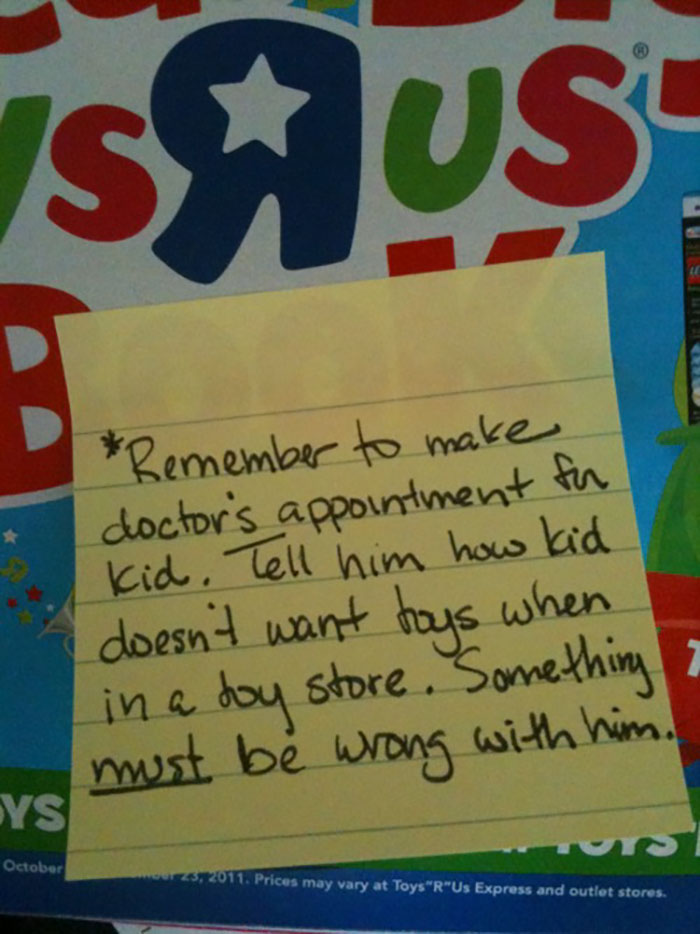 YS"R"US®
BOOK
*Remember to make
doctor's appointment for
kid. Tell him how kid
doesn't want toys when
in a toy store. Something
must be wrong with him.
OYS
October
23, 2011. Prices may vary at Toys"R"Us Express and outlet stores.